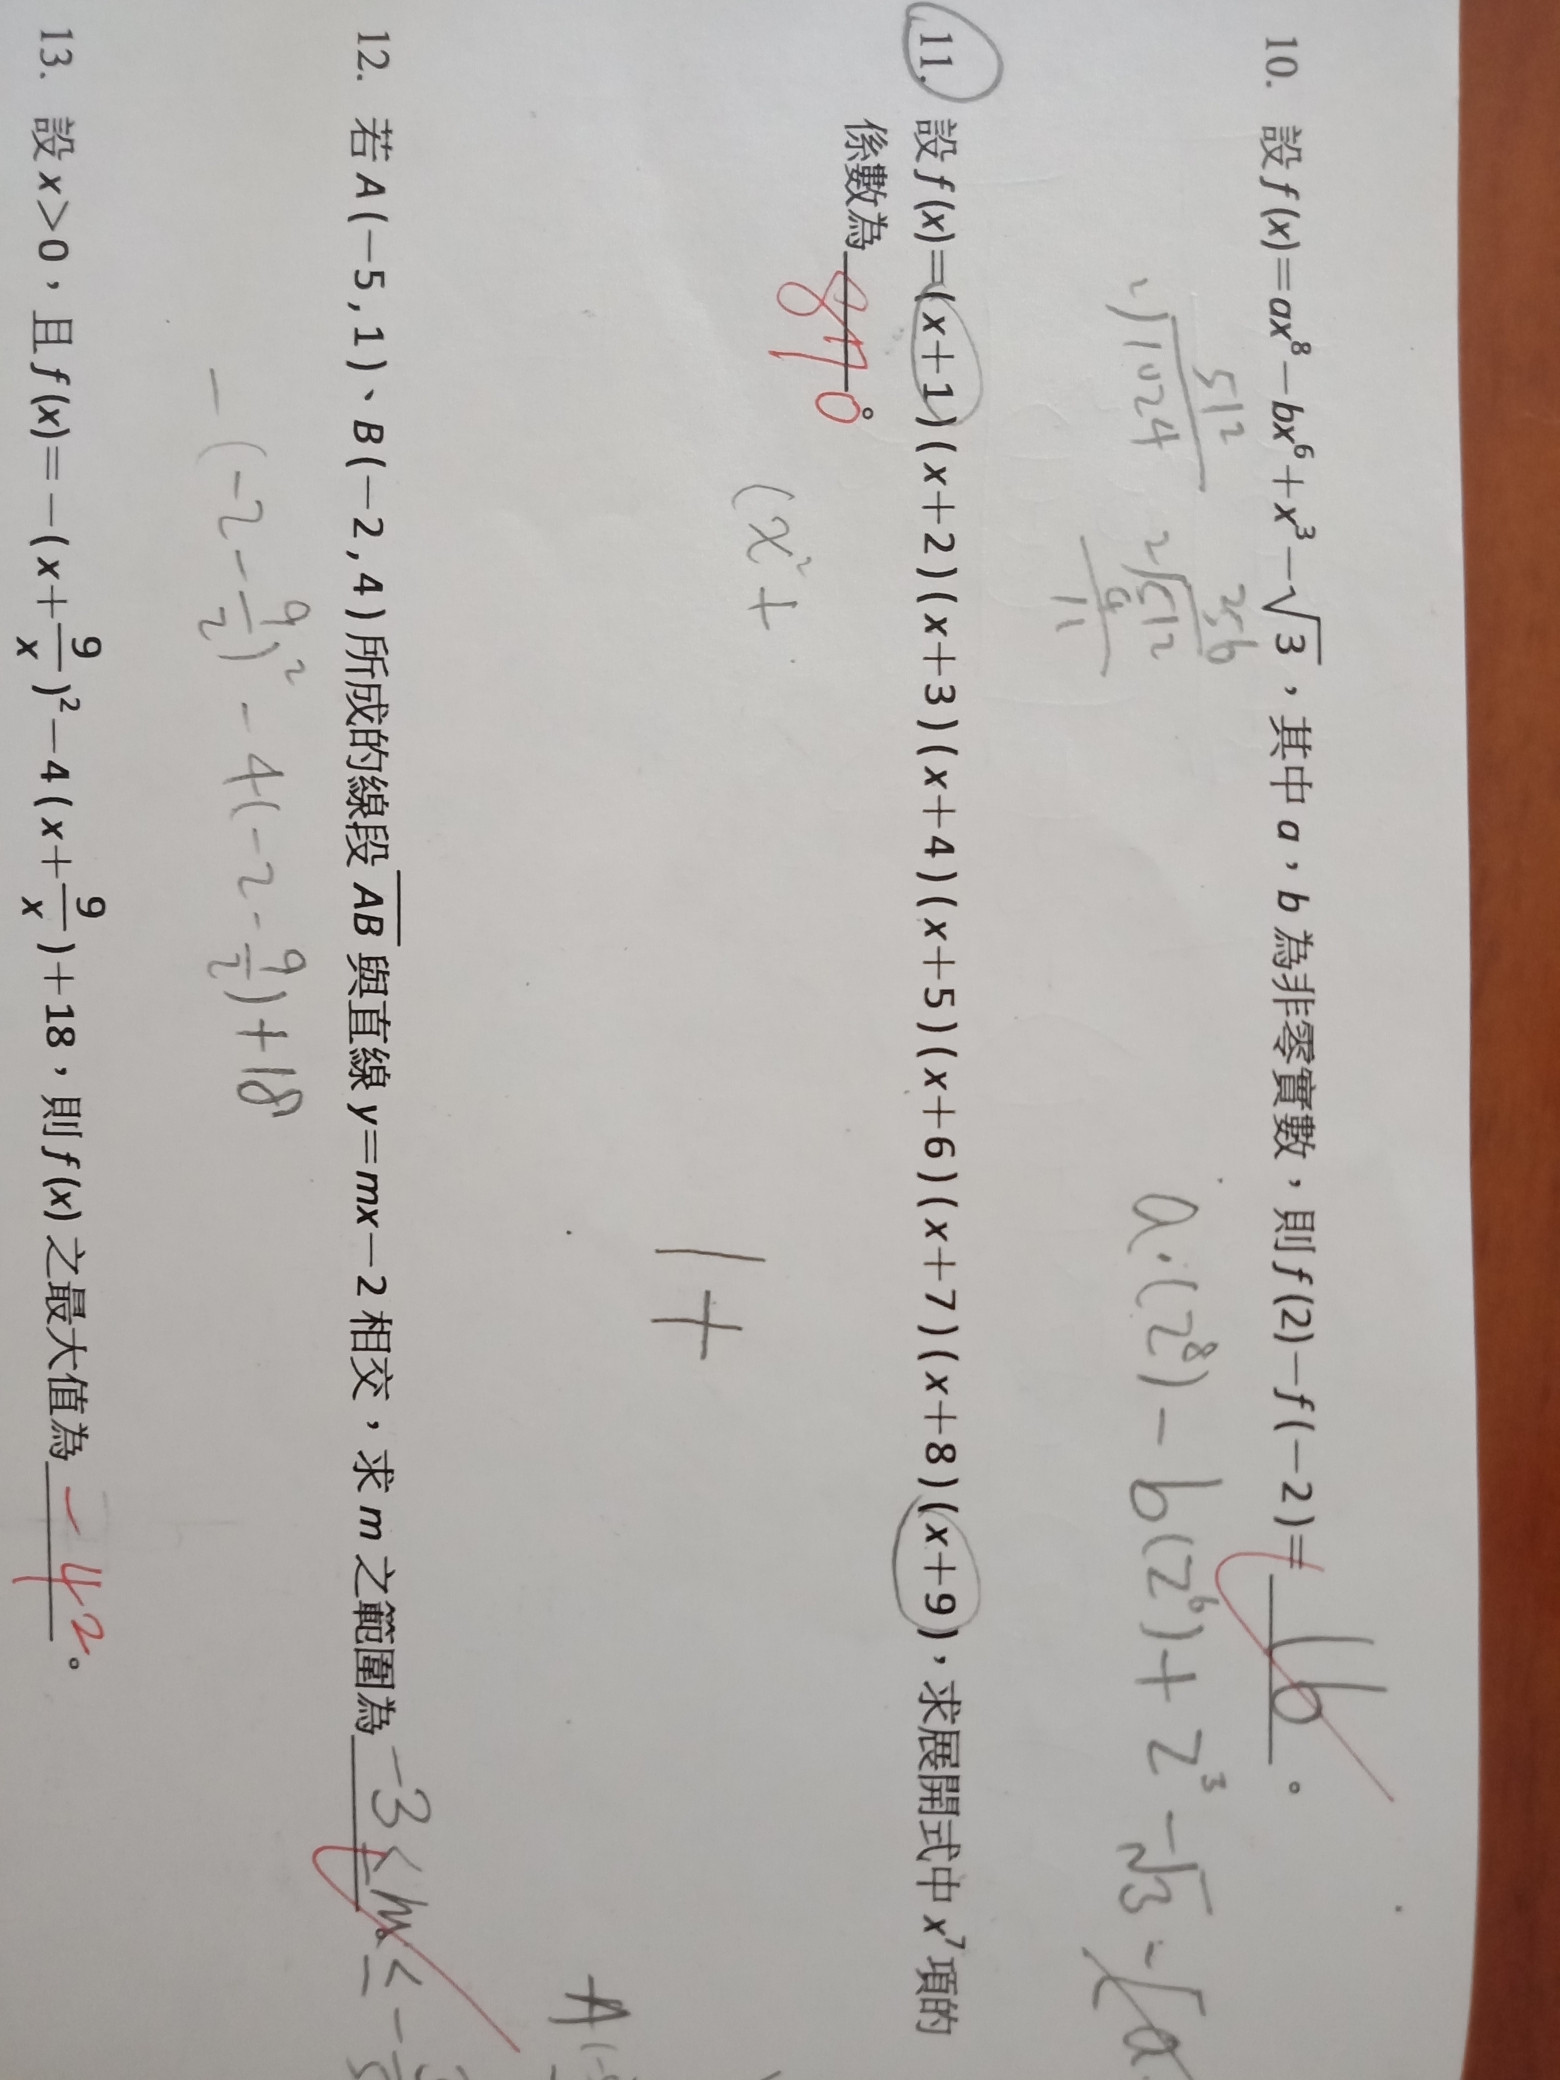 10. 設 f(x)=ax⁸-bx⁶+x³-√3,其中 a,b 為非零實數,則 f(2)-f(-2)= 16 。
512
2)1024
256
2)512
4
11
a·(2⁸)-b(2⁶)+2³-√3-
11. 設 f(x)=(x+1)(x+2)(x+3)(x+4)(x+5)(x+6)(x+7)(x+8)(x+9),求展開式中 x⁷ 項的
係數為 870 。
(x²+
1+
12. 若 A(-5,1)、B(-2,4) 所成的線段 AB 與直線 y=mx-2 相交,求 m 之範圍為 -3≤m≤-
-(-2-9/2)²-4(-2-9/2)+18
13. 設 x>0,且 f(x)=-(x+9/x)²-4(x+9/x)+18,則 f(x) 之最大值為 -42 。